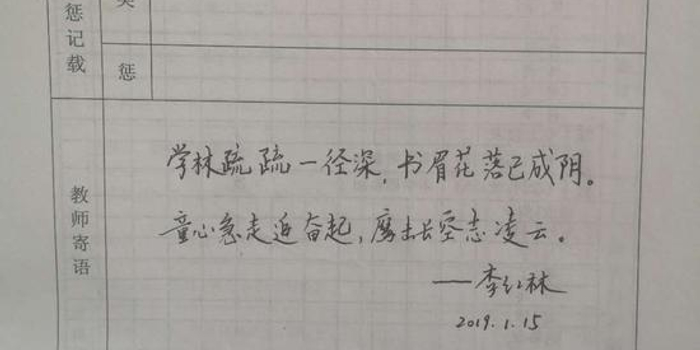 惩记载
惩
教师寄语
学林疏疏一径深,书眉花落已成阴。
童心急走追奋起,鹰击长空志凌云。
——李红林
2019.1.15